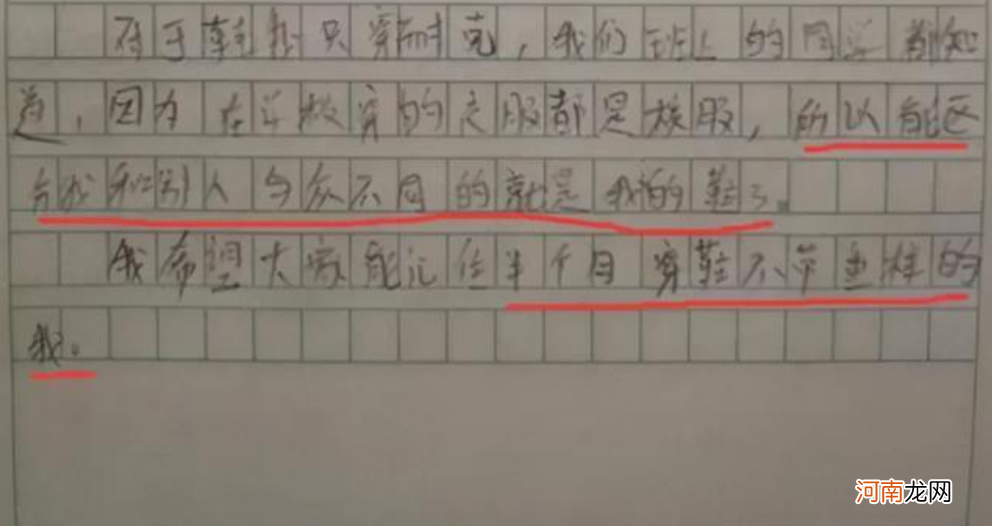 对于鞋我只穿耐克，我们班上的同学都知
道，因为在学校穿的衣服都是校服，所以能区
分我和别人与众不同的就是我的鞋了。
我希望大家能记住半个月穿鞋不带重样的
我。
河南龙网